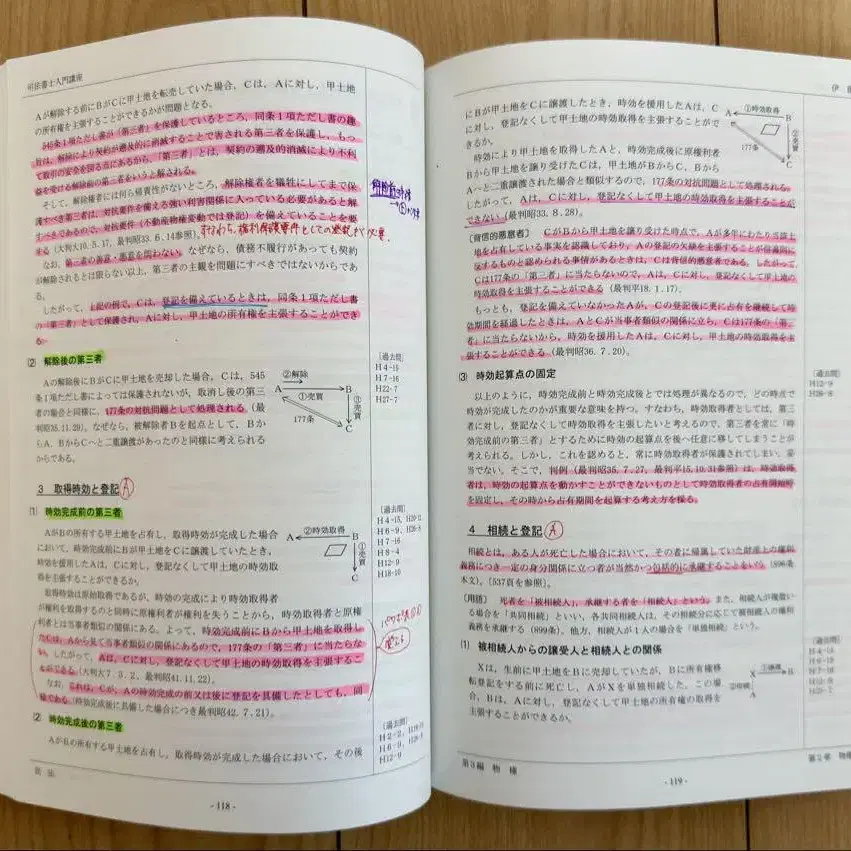 司法書士入門講座
Aが解除する前にBがCに甲土地を転売していた場合、Cは、Aに対し、甲土地
の所有権を主張することができるかが問題となる。
545条1項ただし書が「第三者」を保護しているところ、同条1項ただし書の趣
旨は、解除により契約が遡及的に消滅することで害される第三者を保護し、もっ
て取引の安全を図る点にあるから、「第三者」とは、契約の遡及的消滅により不利
益を受ける解除前の第三者をいうと解される。
そして、解除権者には何ら帰責性がないところ、解除権者を犠牲にしてまで保
護すべき第三者は、対抗要件を備える強い利害関係に入っている必要があると解
すべきであるので、対抗要件（不動産物権変動では登記）を備えていることを要
する（大判大10.5.17、最判昭33.6.14参照）。すなわち、権利保護要件としての登記が必要。
なお、第三者の善意・悪意を問わない。なぜなら、債務不履行があっても契約
が解除されるとは限らない以上、第三者の主観を問題にすべきではないからであ
る。
したがって、上記の例で、Cは、登記を備えているときは、同条1項ただし書
の「第三者」として保護され、Aに対し、甲土地の所有権を主張することができ
る。
⑵ 解除後の第三者
Aの解除後にBがCに甲土地を売却した場合、Cは、545
条1項ただし書によっては保護されないが、取消し後の第三
者の場合と同様に、177条の対抗問題として処理される（最
判昭35.11.29）。なぜなら、被解除者Bを起点として、Bか
らA、BからCへと二重譲渡があったのと同様に考えられる
からである。
②解除
A B
①売買
③売買
177条
C
〔過去問〕
H4-15
H7-16
H22-7
H27-7
3 取得時効と登記 A
⑴ 時効完成前の第三者
AがBの所有する甲土地を占有し、取得時効が完成した場合
において、時効完成前にBが甲土地をCに譲渡していたとき、
時効を援用したAは、Cに対し、登記なくして甲土地の時効取
得を主張することができるか。
取得時効は原始取得であるが、時効の完成により時効取得者
が権利を取得するのと同時に原権利者が権利を失うことから、時効取得者と原権
利者とは当事者類似の関係にある。よって、時効完成前にBから甲土地を取得し
たCは、Aから見て当事者類似の関係にあるので、177条の「第三者」に当たらな
い。したがって、Aは、Cに対し、登記なくして甲土地の時効取得を主張するこ
とができる（大判大7.3.2、最判昭41.11.22）。
なお、これは、Cが、Aの時効完成の前又は後に登記を具備したとしても、同
様である（時効完成後に具備した場合につき最判昭42.7.21）。
②時効取得
A B
①売買
C
〔過去問〕
H4-15、H10-12
H6-9、H26-8
H7-16
H8-4
H12-9
H18-10
⑵ 時効完成後の第三者
AがBの所有する甲土地を占有し、取得時効が完成した場合において、その後
〔過去問〕
H6-9、H26-8
H12-9
-118-
にBが甲土地をCに譲渡したとき、時効を援用したAは、C
に対し、登記なくして甲土地の時効取得を主張することがで
きるか。
時効により甲土地を取得したAと、時効完成後に原権利者
Bから甲土地を譲り受けたCは、甲土地がBからC、Bから
Aへと二重譲渡された場合と類似するので、177条の対抗問題として処理される。
したがって、Aは、Cに対し、登記なくして甲土地の時効取得を主張することが
できない（最判昭33.8.28）。
①時効取得
A B
②売買
177条
C
〔背信的悪意者〕 CがBから甲土地を譲り受けた時点で、Aが多年にわたり当該土
地を占有している事実を認識しており、Aの登記の欠缺を主張することが信義則に
反するものと認められる事情があるときは、Cは背信的悪意者である。したがって
Cは177条の「第三者」に当たらないので、Aは、Cに対し、登記なくして甲土地の
時効取得を主張することができる（最判平18.1.17）。
もっとも、登記を備えていなかったAが、Cの登記後に更に占有を継続して時
効期間を経過したときは、AとCが当事者類似の関係に立ち、Cは177条の「第三
者」に当たらないから、時効を援用したAは、Cに対し、甲土地の時効取得を主
張することができる（最判昭36.7.20）。
⑶ 時効起算点の固定
以上のように、時効完成前と時効完成後とでは処理が異なるので、どの時点で
時効が完成したのかが重要な意味を持つ。すなわち、時効取得者としては、第三
者に対し、登記なくして時効取得を主張したいと考えるので、第三者を常に「時
効完成前の第三者」とするために時効の起算点を後へ任意に移してしまうことが
考えられる。しかし、これを認めると、常に時効取得者が保護されてしまい、妥
当でない。そこで、判例（最判昭35.7.27、最判平15.10.31参照）は、時効取得
者は、時効の起算点を動かすことができないものとして時効取得者の占有開始時
を固定し、その時から占有期間を起算する考え方を採る。
〔過去問〕
H12-9
H26-8
4 相続と登記 A
相続とは、ある人が死亡した場合において、その者に帰属していた財産上の権利
義務につき一定の身分関係に立つ者が当然かつ包括的に承継することをいう（896条
本文）。〔537頁を参照〕。
〔用語〕 死者を「被相続人」、承継する者を「相続人」という。また、相続人が複数い
る場合を「共同相続」といい、各共同相続人は、その相続分に応じて被相続人の権利
義務を承継する（899条）。他方、相続人が1人の場合を「単独相続」という。
⑴ 被相続人からの譲受人と相続人との関係
Xは、生前に甲土地をBに売却していたが、Bに所有権移
転登記をする前に死亡し、AがXを単独相続した。この場
合、Bは、Aに対し、登記なくして甲土地の所有権の取得を
主張することができるか。
X B
②相続
A
〔過去問〕
第3編 物権
-119-